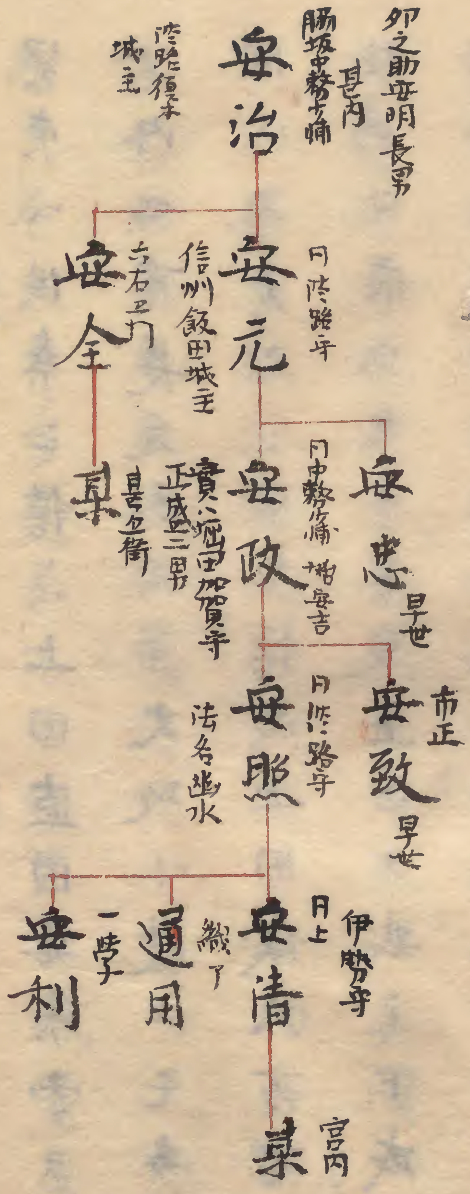 卯之助安明長男
甚内
脇坂中務少輔
安治
淡路須本
城主
同淡路守
安元
信州飯田城主
六右卫门
安全
安忠
早世
同中務少輔 始安吉
安政
實ハ堀田加賀守
正盛二男
甚兵衛
某
市正
安致
早世
同淡路守
安照
法名幽水
伊勢守
同上
安清
織了
通用
一学
安利
宮内
某